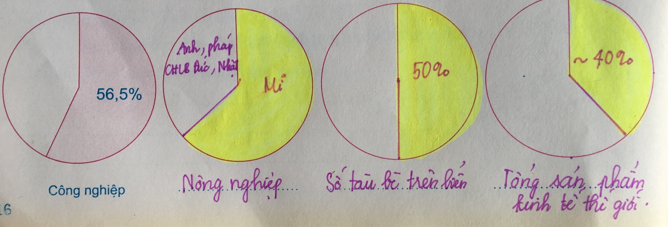 56,5%
Anh, pháp
CHLB Đức, Nhật
Mĩ
50%
~ 40%
Công nghiệp
Nông nghiệp
Số tàu bè trên biển
Tổng sản phẩm
kinh tế thế giới.
16